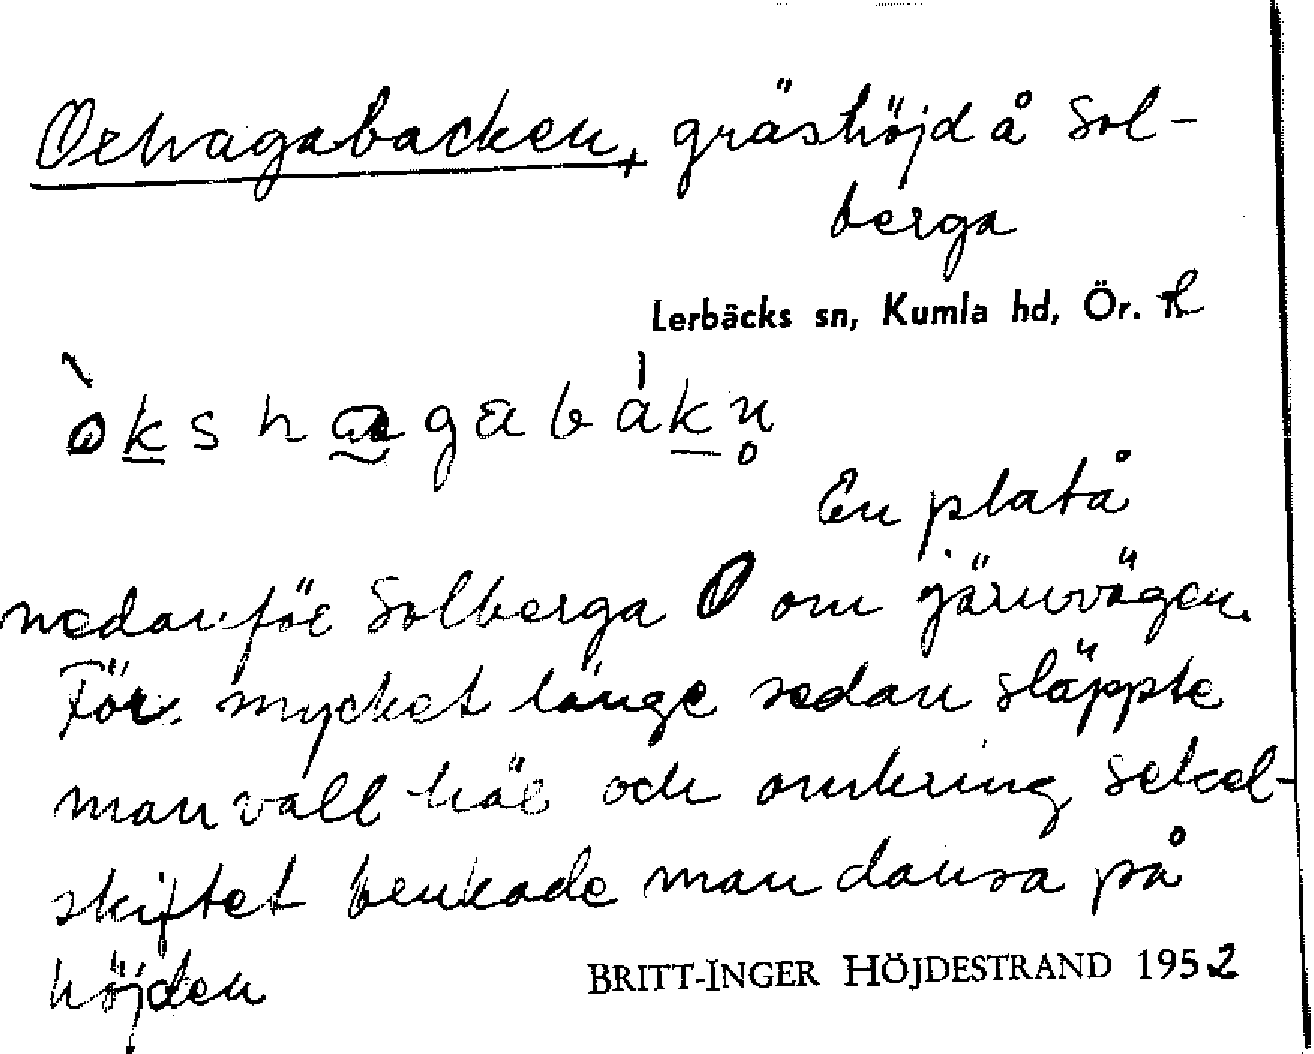 Oxhagabacken, gräshöjd å Sol-
berga
Lerbäcks sn, Kumla hd, Ör. l
òkshagabákn̥
En platå
nedanför Solberga O om järnvägen.
För mycket länge sedan släppte
man vall här och omkring sekel-
skiftet brukade man dansa på
höjden
BRITT-INGER HÖJDESTRAND 1952